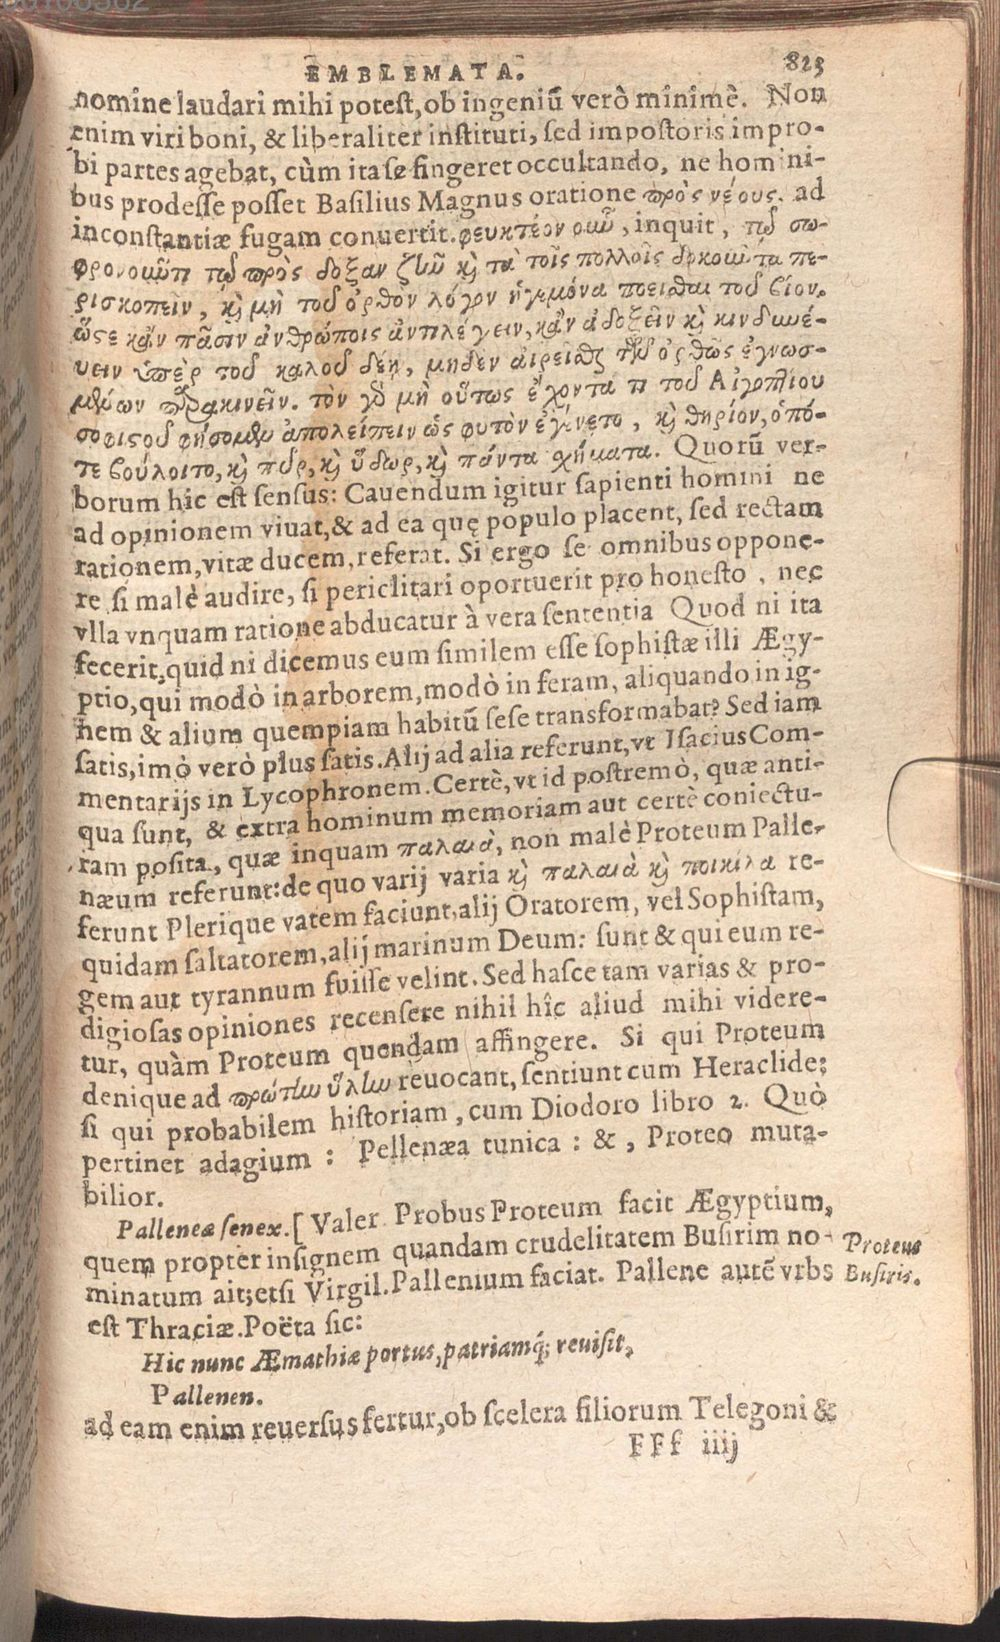 EMBLEMATA. 823
nomine laudari mihi potest, ob ingeniū verò minimè. Non
enim viri boni, & liberaliter instituti, sed impostoris impro-
bi partes agebat, cùm ita se fingeret occultando, ne homini-
bus prodesse posset Basilius Magnus oratione πρὸς νέους. ad
inconstantiæ fugam conuertit. φευκτέον οὖν, inquit, τῷ σω-
φρονοῦντι τὸ πρὸς δόξαν ζῆν κὶ τὰ τοῖς πολλοῖς δοκοῦντα πε-
ρισκοπεῖν, κὶ μὴ τὸν ὀρθὸν λόγον ἡγεμόνα ποιεῖσθαι τοῦ βίου.
ὥστε κἂν πᾶσιν ἀνθρώποις ἀντιλέγειν, κἂν ἀδοξεῖν κὶ κινδυνέ-
υειν ὑπὲρ τοῦ καλοῦ δέῃ, μηδὲν αἱρεῖσθαι τῶν ὀρθῶς ἐγνωσ-
μένων παρακινεῖν. τὸν γὸ μὴ οὕτως ἔχοντα τι τοῦ Αἰγυπτίου
σοφιστοῦ φήσομεν ἀπολείπειν ὡς φυτὸν ἐγίνετο, κὶ θηρίον, ὁπό-
τε βούλοιτο, κὶ πῦρ, κὶ ὕδωρ, κὶ πάντα χήματα. Quorū ver-
borum hic est sensus: Cauendum igitur sapienti homini ne
ad opinionem viuat, & ad ea quę populo placent, sed rectam
rationem, vitæ ducem, referat. Si ergo se omnibus oppone-
re si malè audire, si periclitari oportuerit pro honesto, nec
vlla vnquam ratione abducatur à vera sententia Quod ni ita
fecerit, quid ni dicemus eum similem esse sophistæ illi Ægy-
ptio, qui modò in arborem, modò in feram, aliquando in ig-
nem & alium quempiam habitū sese transformabat? Sed iam
satis, imò verò plus satis. Alij ad alia referunt, vt Isacius Com-
mentarijs in Lycophronem. Certè, vt id postremò, quæ anti-
qua sunt, & extra hominum memoriam aut certè coniectu-
ram posita, quæ inquam παλαιὰ, non malè Proteum Palle-
næum referunt: de quo varij varia κὶ παλαιὰ κὶ ποικίλα re-
ferunt Plerique vatem faciunt, alij Oratorem, vel Sophistam,
quidam saltatorem, alij marinum Deum: sunt & qui eum re-
gem aut tyrannum fuisse velint. Sed hasce tam varias & pro-
digiosas opiniones recensere nihil hîc aliud mihi videre-
tur, quàm Proteum quendam affingere. Si qui Proteum
denique ad πρώτην ὕλην reuocant, sentiunt cum Heraclide;
si qui probabilem historiam, cum Diodoro libro 2. Quò
pertinet adagium: Pellenæa tunica: &, Proteo muta-
bilior.
Palleneæ senex. [Valer Probus Proteum facit Ægyptium,
quem propter insignem quandam crudelitatem Busirim no-
minatum ait; etsi Virgil. Pallenium faciat. Pallene autē vrbs
est Thraciæ. Poëta sic:
Proteus
Busiris.
Hic nunc Æmathiæ portus, patriamq́; reuisit,
Pallenen.
ad eam enim reuersus fertur, ob scelera filiorum Telegoni &
FFf iiij